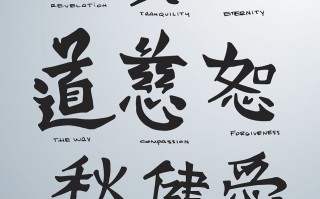 REVELATION TRANQUILITY ETERNITY
道 慈 恕
THE WAY COMPASSION FORGIVENESS
秋 健 愛